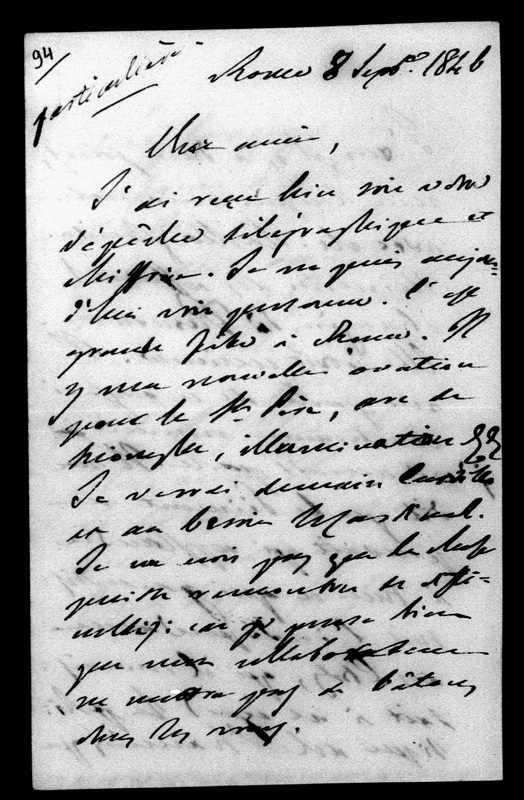 94
particulière.
Rome 8 Sept. 1846
Cher ami,
J'ai reçu hier soir votre
dépêche télégraphique et
chiffrée. Je ne puis aujour=
d'hui voir personne. C'est
grande fête à Rome. Il
y a nouvelle ovation
pour le St. Père, arc de
triomphe, illumination &&
Je verrai demain
et au besoin
Je ne crois pas que la chose
puisse rencontrer de diffi=
cultés: car je pense bien
que mon collaborateur
ne mettra pas de bâtons
dans les roues.